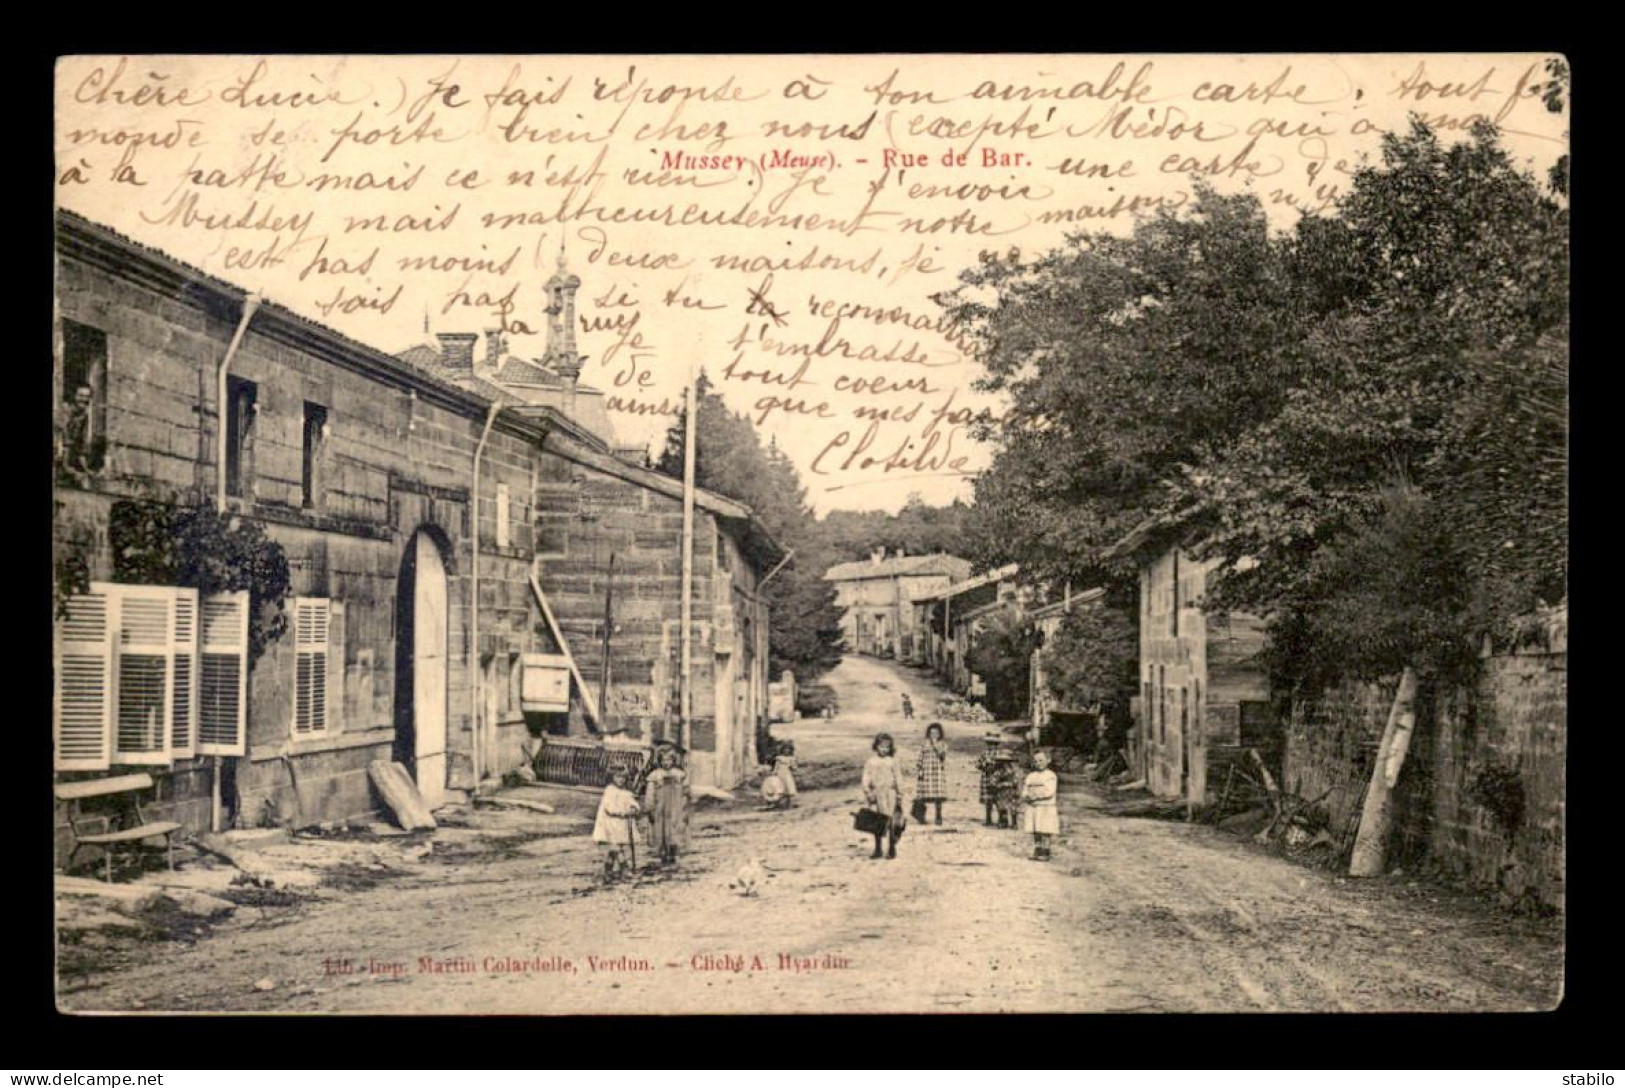 Chère Lucie.) Je fais réponse à ton aimable carte. tout
monde se porte bien chez nous (excepté Médor qui a mal
Mussey (Meuse). - Rue de Bar.
à la patte mais ce n'est rien.) Je t'envoie une carte de
Mussey mais malheureusement notre maison n'y
est pas moins (deux maisons, je ne
sais pas si tu la reconnaitras
la rue
Je t'embrasse
de tout coeur
ainsi que mes
Clotilde
Lith.-Imp. Martin Colardelle, Verdun. - Cliché A. Hyardin
stabilo